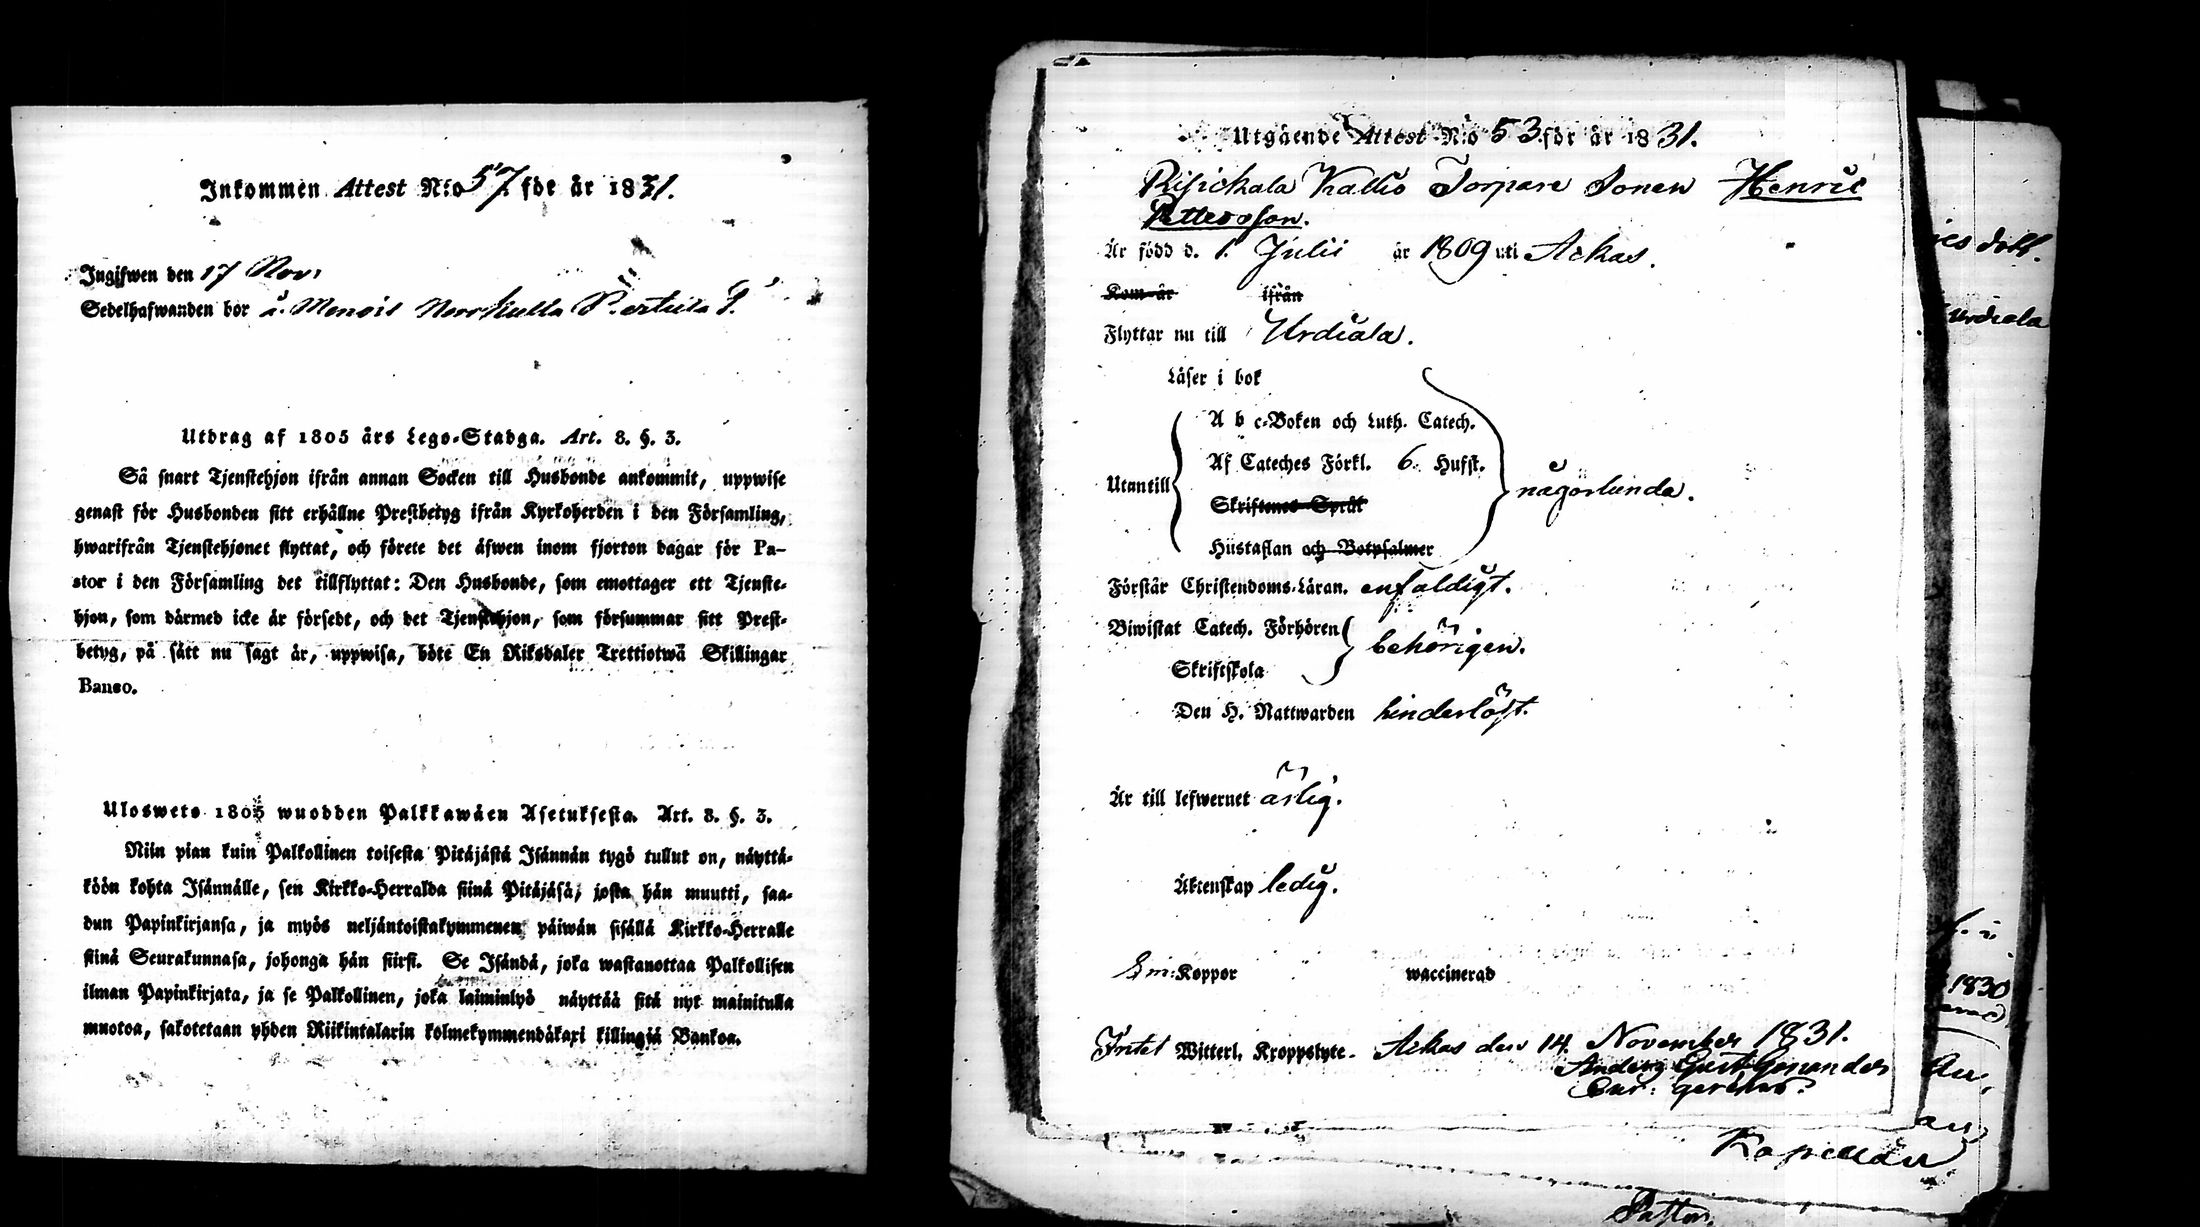 Inkommen Attest N:o 57 för år 1831.
Ingifwen den 17 Nov:
Sedelhafwanden bor å Menois Norrkulla
Utdrag af 1805 års Lego-Stadga. Art. 8. §. 3.
Så snart Tjenstehjon ifrån annan Socken till Husbonde ankommit, uppwise
genast för Husbonden sitt erhållne Prestbetyg ifrån Kyrkoherden i den Församling,
hwarifrån Tjenstehjonet flyttat, och förete det äfwen inom fjorton dagar för Pa-
stor i den Församling det tillflyttat: Den Husbonde, som emottager ett Tjenste-
hjon, som därmed icke är försedt, och det Tjenstehjon, som försummar sitt Prest-
betyg, på sätt nu sagt är, uppwisa, böte En Riksdaler Trettiotwå Skillingar
Banco.
Ulosweto 1805 wuodden Palkkawäen Asetuksesta. Art. 8. §. 3.
Niin pian kuin Palkollinen toisesta Pitäjästä Isännän tygö tullut on, näyttä-
köön kohta Isännälle, sen Kirkko-Herralda siinä Pitäjäsä, josta hän muutti, saa-
dun Papinkirjansa, ja myös neljäntoistakymmenen päiwän sisällä Kirkko-Herralle
siinä Seurakunnasa, johonga hän siirsi. Se Isändä, joka wastanottaa Palkollisen
ilman Papinkirjata, ja se Palkollinen, joka laiminlyö näyttää sitä nyt mainitulla
muotoa, sakotetaan yhden Riikintalarin kolmekymmendäkaxi killingiä Bankoa.
Utgående Attest N:o 53 för år 1831.
Kallio Torpare Sonen Henric
Pettersson.
Är född d. 1. Julii år 1809 uti Ackas.
Kom år ifrån
Flyttar nu till Urdiala.
Läser i bok
A b c-Boken och Luth. Catech.
Af Cateches Förkl. 6. Hufst.
Utantill någorlunda.
Skriftenes Språk
Hustaflan och Botpsalmer
Förstår Christendoms-Läran. enfaldigt.
Biwistat Catech. Förhören behörigen.
Skriftskola
Den H. Nattwarden hinderlöst.
Är till lefwernet ärlig.
Äktenskap ledig.
Koppor waccinerad
Intet Witterl. Kroppslyte. Ackas den 14. November 1831.
Anders Gust
Urdiala
1830
Kapellan
Pastor.